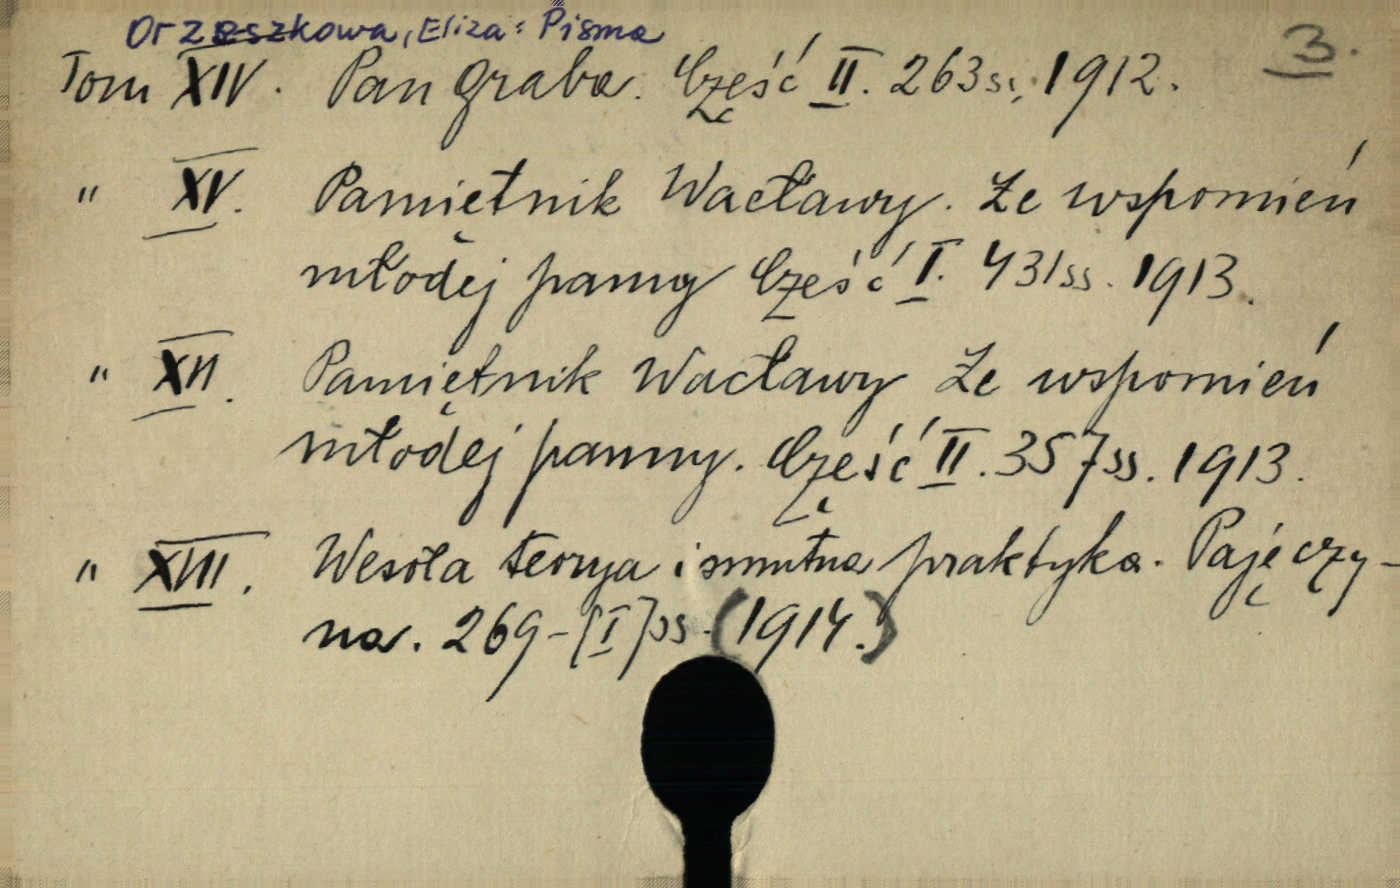 Orzeszkowa, Eliza: Pisma
3.
Tom XIV. Pan Graba. Część II. 263 ss. 1912.
" XV. Pamiętnik Wacławy. Ze wspomnień
młodej panny Część I. 431 ss. 1913.
" XVI. Pamiętnik Wacławy Ze wspomnień
młodej panny. Część II. 357 ss. 1913.
" XVIII. Wesoła teorya i smutna praktyka. Pajęczy-
na. 269-[I] ss. (1914.)